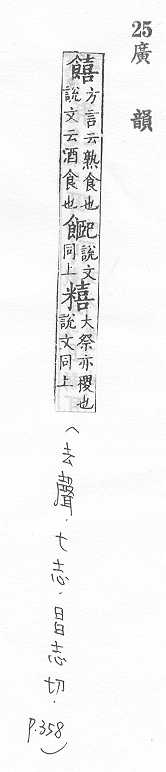 25
廣韻
饎方言云熟食也
說文云酒食也
說文
同上
糦大祭亦稷也
說文同上
(去聲.七志.昌志切.
p.358)